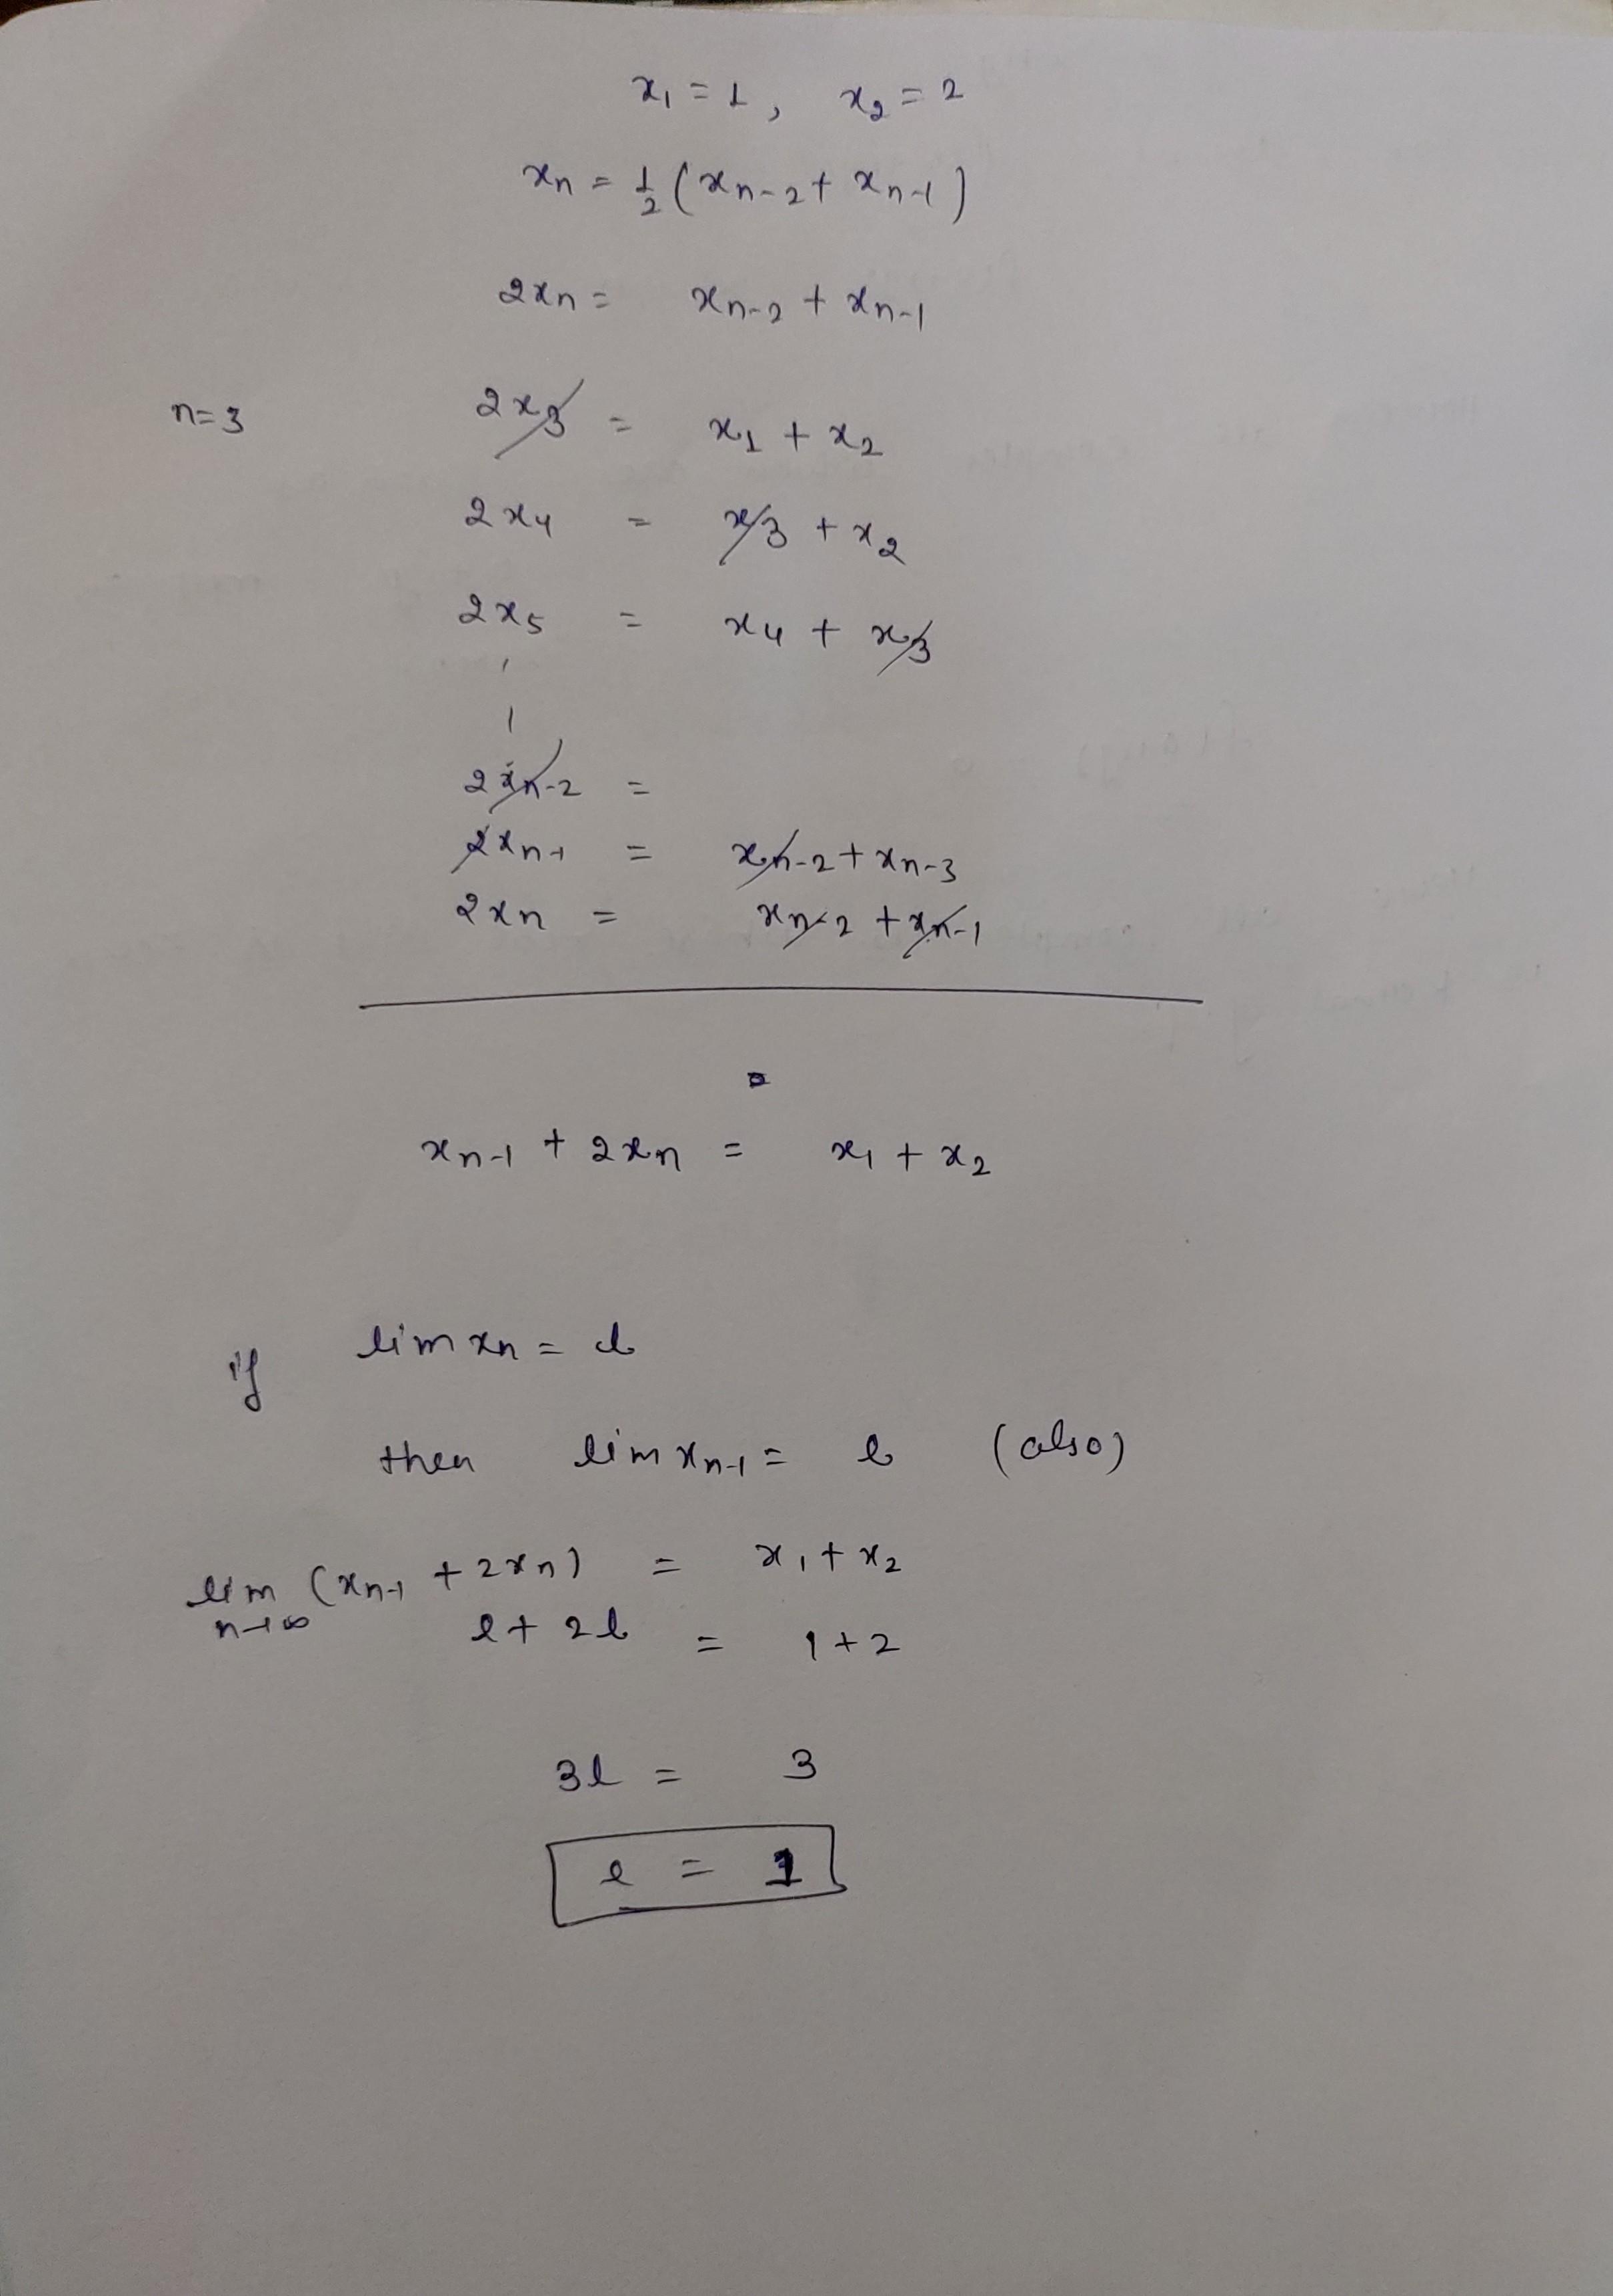 x₁ = 1, x₂ = 2
xₙ = 1/2 (xₙ₋₂ + xₙ₋₁)
2xₙ = xₙ₋₂ + xₙ₋₁
n=3 2x₃ = x₁ + x₂
2x₄ = x₃ + x₂
2x₅ = x₄ + x₃
2xₙ₋₂ =
2xₙ₋₁ = xₙ₋₂ + xₙ₋₃
2xₙ = xₙ₋₂ + xₙ₋₁
xₙ₋₁ + 2xₙ = x₁ + x₂
if lim xₙ = l
then lim xₙ₋₁ = l (also)
lim n→∞ (xₙ₋₁ + 2xₙ) = x₁ + x₂
l + 2l = 1 + 2
3l = 3
l = 1